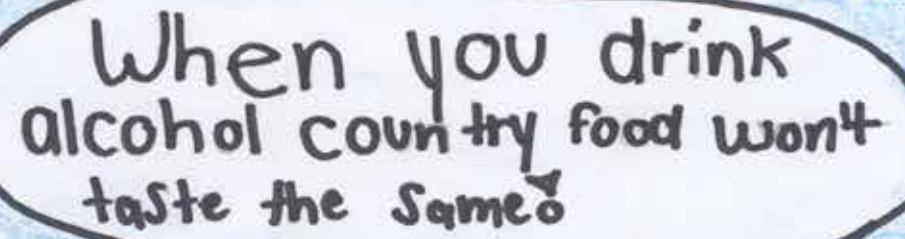 When you drink
alcohol country food won't
taste the same!